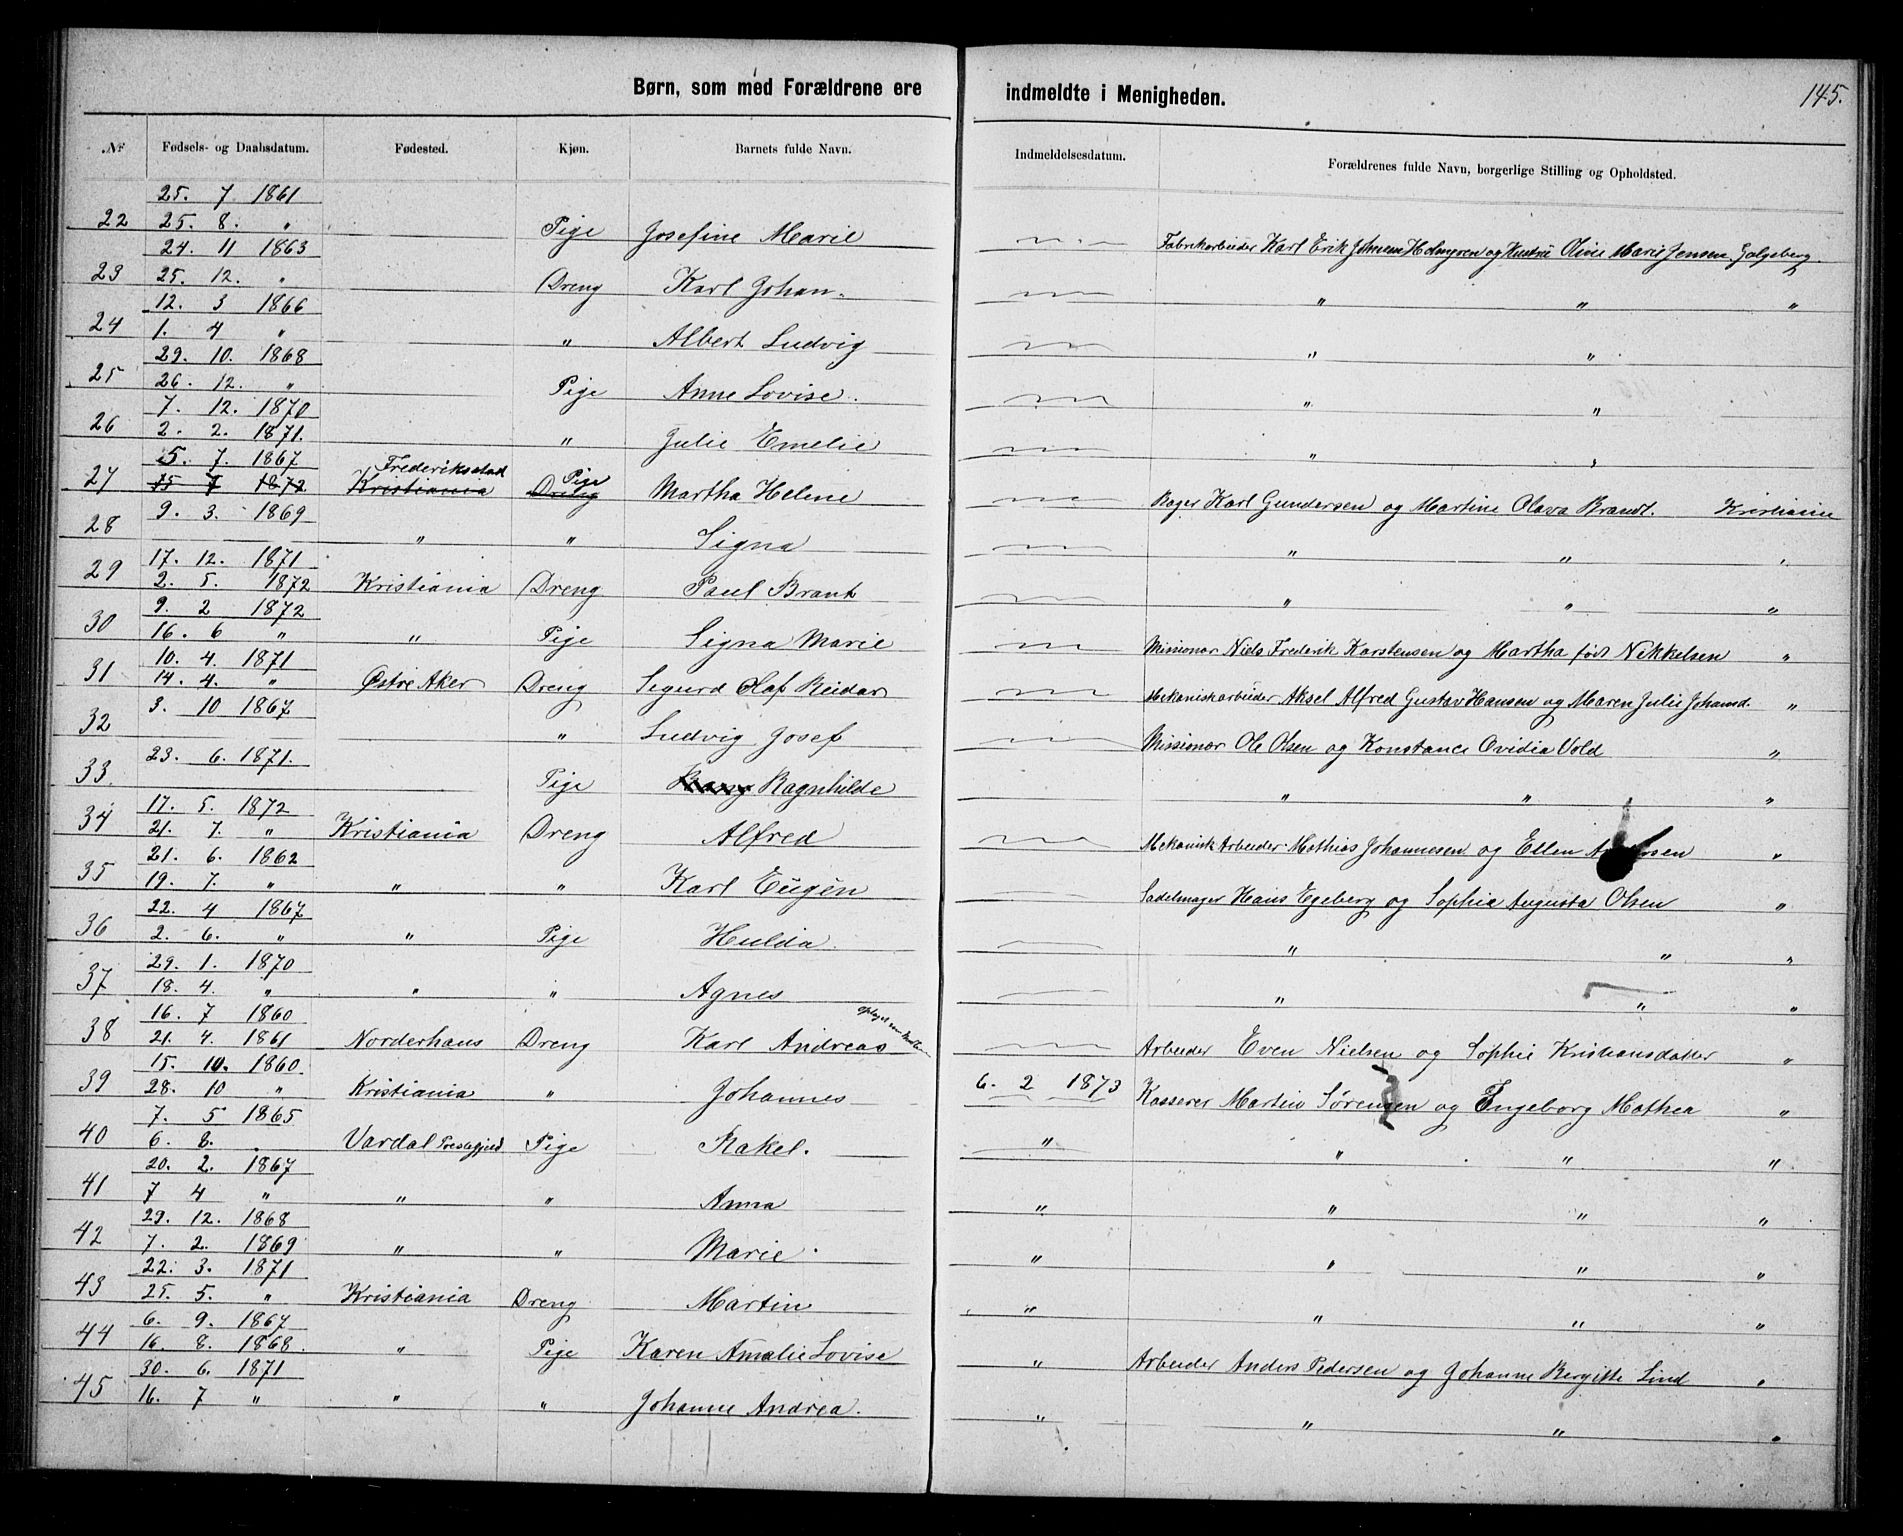 Børn, som med Forældrene ere indmeldte i Menigheden. 145.
№ Fødsels- og Daabsdatum. Fødested. Kjøn. Barnets fulde Navn. Indmeldelsesdatum. Forældrenes fulde Navn, borgerlige Stilling og Opholdsted.
25. 7 1861
22 25. 8. " Pige Josefine Marie Fabrikarbeider Karl Erik Johnsen Holmgren og Hustru Oline Marie Jensen. Galgeberg.
24. 11 1863
23 25. 12. " Dreng Karl Johan " " "
12. 3 1866
24 1. 4 " " Albert Ludvig " "
29. 10. 1868
25 26. 12. " Pige Anne Lovise. " "
7. 12. 1870
26 2. 2. 1871. " Julie Emelie " "
5. 7. 1867 Frederiksstad Pige
27 15 7 1872 Kristiania Dreng Martha Helene Bager Karl Gundersen og Martine Olava Brandt. Kristiania
9. 3. 1869
28 " " Signa " " "
17. 12. 1871
29 2. 5. 1872 Kristiania Dreng Paul Brant " " "
9. 2 1872
30 16. 6 " " Pige Signa Marie Missionær Niels Frederik Karstensen og Martha født Nikkelsen "
10. 4. 1871
31 14. 4. " Østre Aker Dreng Sigurd Olaf Reidar Mekaniskarbeider Aksel Alfred Gustav Hansen og Maren Julie Johansd. "
3. 10 1867
32 " Ludvig Josef Missionær Ole Olsen og Konstance Ovidia Vold "
23. 6. 1871.
33. Pige Ragnhilde " " "
17. 5. 1872
34 21. 7. " Kristiania Dreng Alfred Mekanisk Arbeider Mathias Johannesen og Ellen "
21. 6. 1862
35 19. 7. " " " Karl Eugén Sadelmager Hans Egeberg og Sophie Augusta Olsen "
22. 4 1867
36 2. 6. " " Pige Hulda. " " "
29. 1. 1870
37 18. 4. " " " Agnes " " "
16. 7 1860
38 21. 4. 1861 Norderhaus Dreng Karl Andreas Arbeider Even Nielsen og Sophie Kristiansdatter "
15. 10. 1860
39 28. 10 " Kristiania " Johannes 6. 2 1873 Kasserer Martin Sørensen og Engeborg Mathea "
7. 5 1865
40 6. 8. Vardal Præstegjeld Pige Rakel. " " " "
20. 2. 1867
41 7 4 " " " Anna " " " "
29. 12. 1868
42 7. 2. 1869 " " Marie. " " " "
22. 3. 1871
43 25. 5. " Kristiania Dreng Martin " " " "
6. 9. 1867
44 16. 8. 1868. " Pige Karen Amalie Lovise " Arbeider Anders Pedersen og Johanne Bergitte Lind "
30. 6. 1871
45 16. 7 " " " Johanne Andrea. " " " "